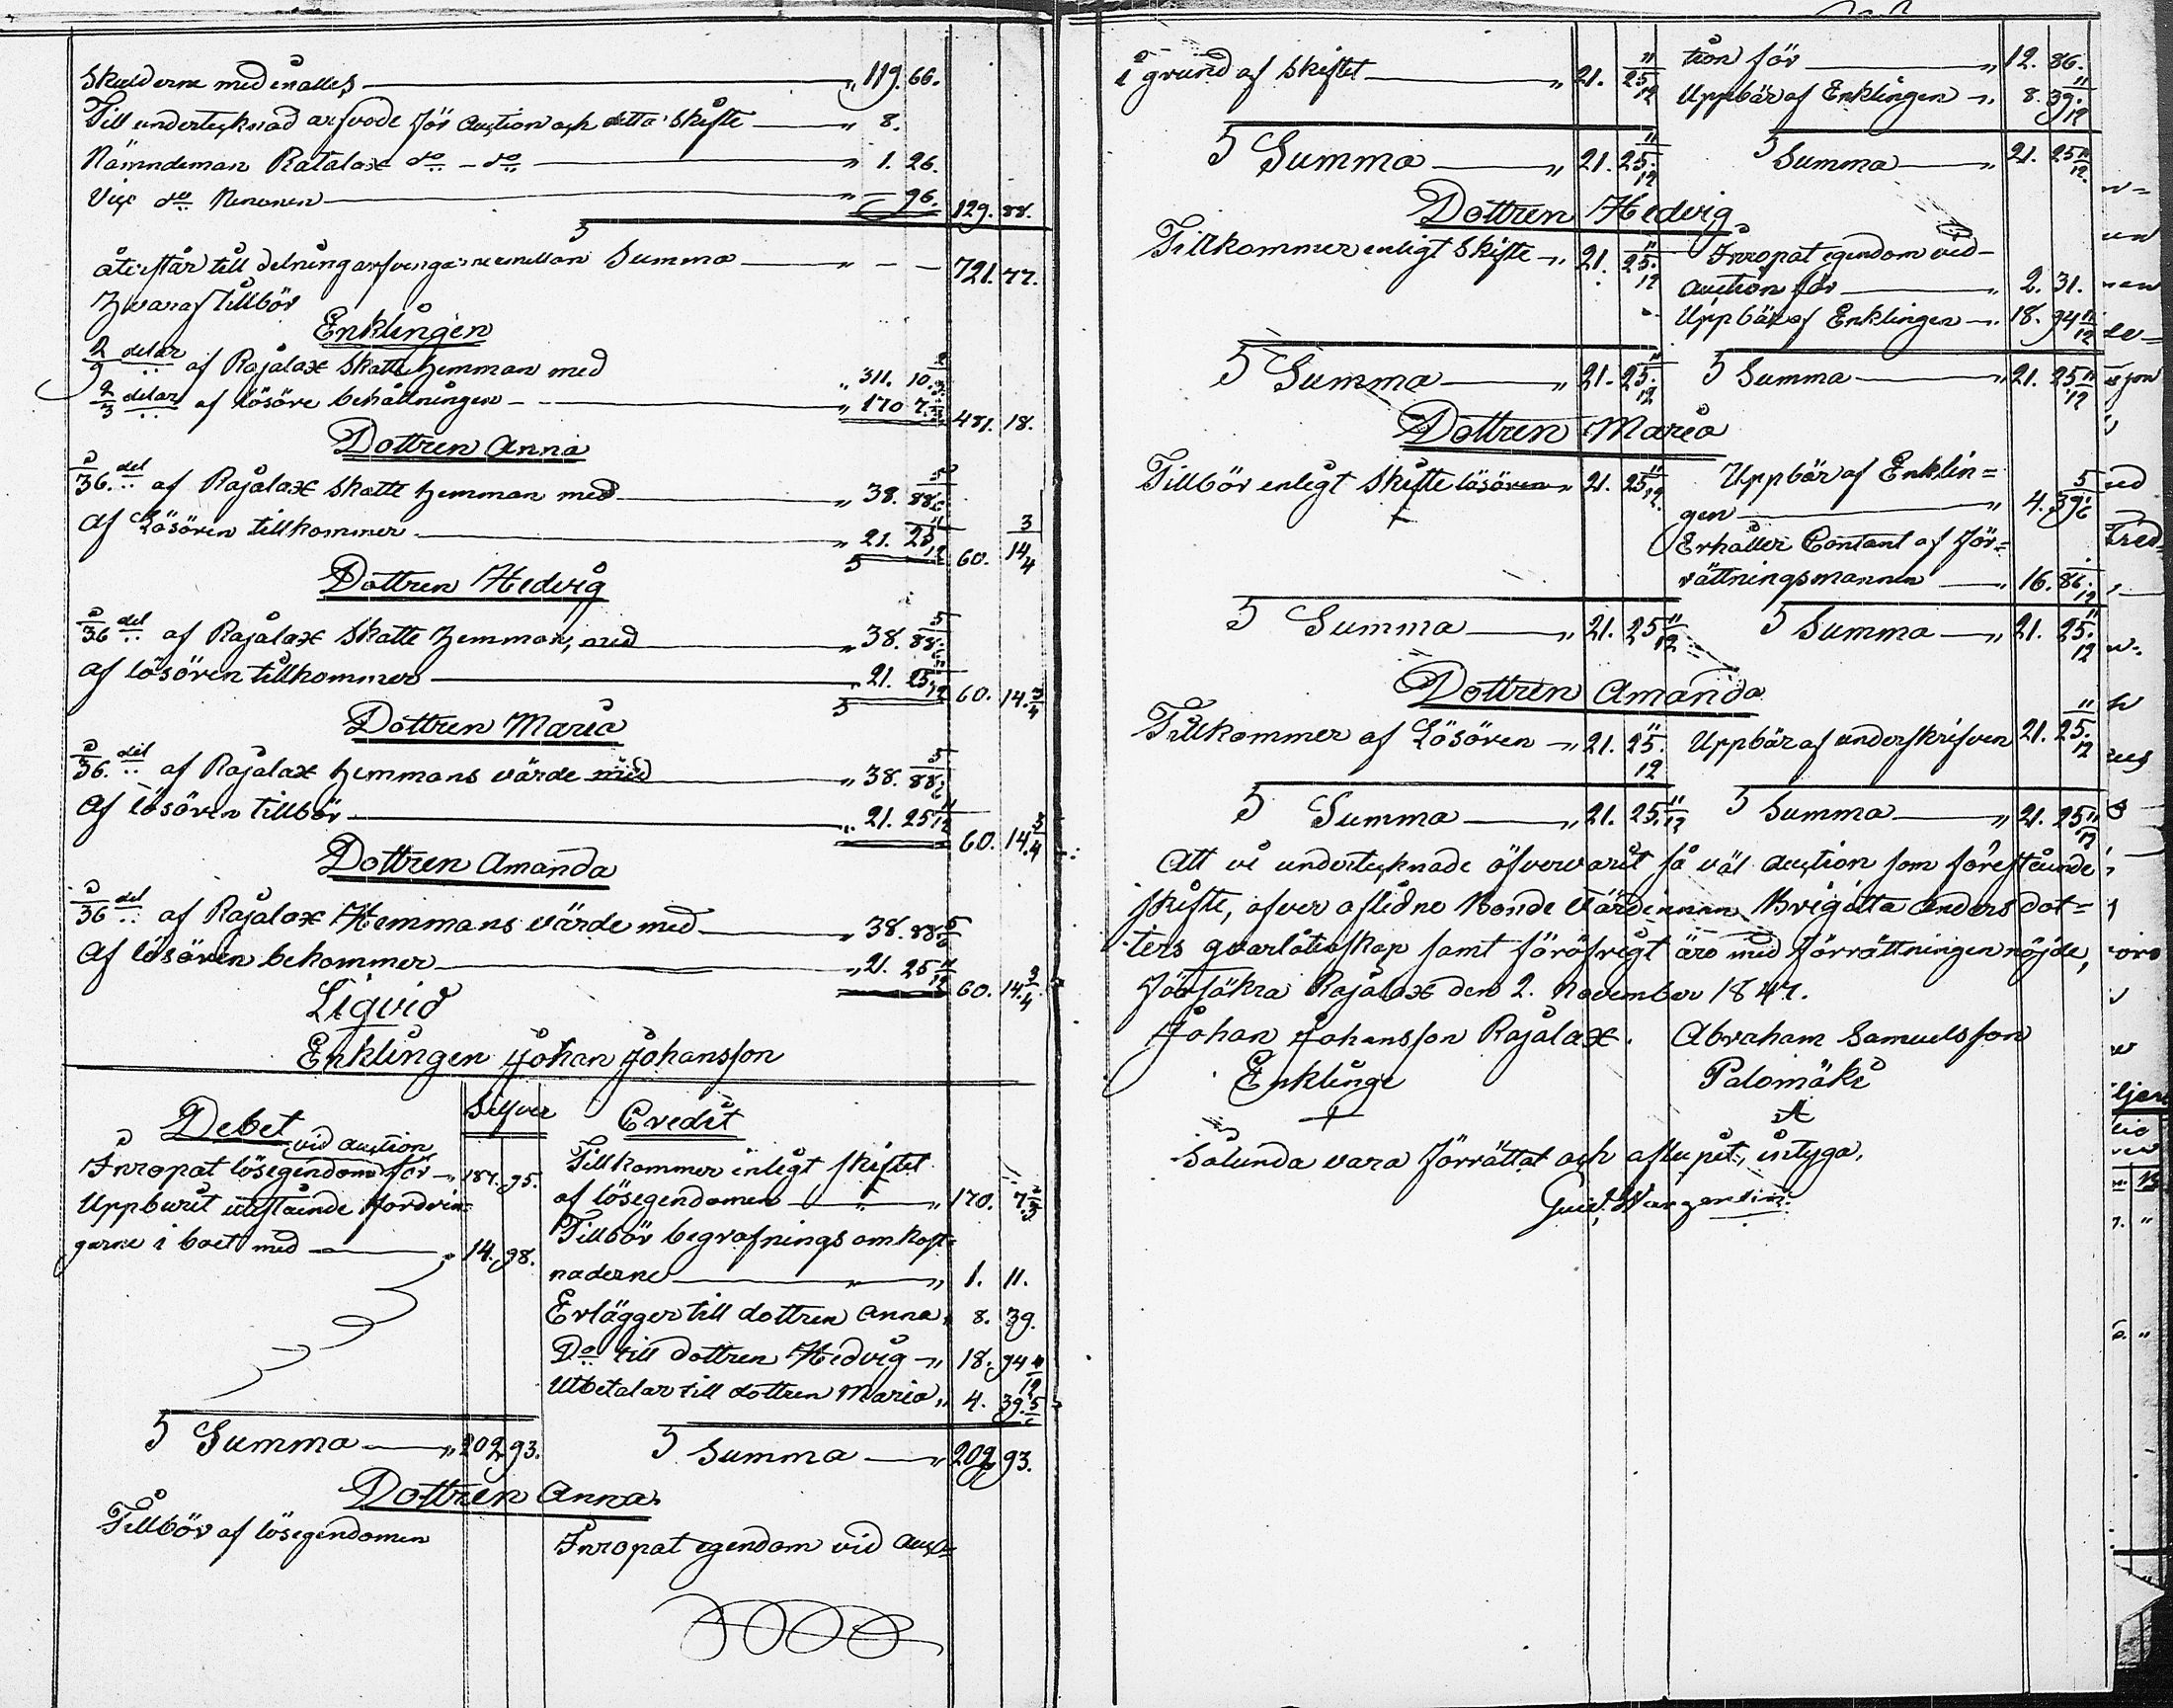 Skulderne med inalles — " 119. 66.
Till undertecknad arfvode för Auction och detta Skifte — " 8.
Nämndeman Rajalax do — do — " 1. 26.
Vice do Renonen — " — 96. 129. 88.
S Summa
återstår till delning arfvingarne emellan — " — — 721. 77.
hvaraf tillbör
Enklingen
2/9 delar af Rajalax Skatte hemman med " 311. 10 1/3
2/3 delar af lösöre behållningen — " 170 7 2/3 481. 18.
Dottren Anna
1/36 del af Rajalax Skatte hemman med — " 38. 88 5/6
Af Lösören tillkommer — " 21. 25 11/12 60. 14 3/4
Dottren Hedvig
1/36 del af Rajalax Skatte hemman, med — " 38. 88 5/6
Af lösören tillkommer — " 21. 25 11/12 60. 14. 3/4
Dottren Maria
1/36 del af Rajalax hemmans värde med — " 38. 88 5/6
Af lösören tillbör — " 21. 25 11/12 60. 14. 3/4
Dottren Amanda
1/36 del af Rajalax Hemmans värde med — " 38. 88 5/6
Af lösören bekommer — " 21. 25 11/12 60. 14. 3/4
Liqvid
Enklingen Johan Johansson
Debet Silfver Credit
vid auction
Inropat lösegendom för — " 187. 95.
Uppburit utestående fordrin=
garne i boet med — " 14. 98.
S Summa — " 202 93.
Tillkommer enligt skiftet
af lösegendomen — " 170. 7 2/3
Tillbör begrafnings omkost=
naderne — " 1. 11.
Erlägger till dottren Anna " 8. 39.
Do till dottren Hedvig — " 18. 94 11/12
Utbetalar till dottren Maria " 4. 39. 5/6
S Summa — " 202 93.
Dottren Anna
Tillbör af lösegendomen
Inropat egendom vid Auc=
i grund af skiftet — " 21. 25 11/12
tion för — " 12. 86.
Uppbär af Enklingen — " 8. 39. 11/12
S Summa — " 21. 25. 11/12 S Summa — " 21. 25 11/12
Dottren Hedvig
Tillkommer enligt Skifte — " 21. 25. 11/12
Inropat egendom vid
auction för — " 2. 31.
Uppbär af Enklingen — " 18. 94 11/12
S Summa — " 21. 25. 11/12 S Summa — " 21. 25 11/12
Dottren Maria
Tillbör enligt Skifte lösören " 21. 25 11/12
Uppbär af Enklin=
gen — " 4. 39 5/6
Erhåller Contant af för=
rättningsmannen — " 16. 86. 1/12
S Summa — " 21. 25 11/12 S Summa — " 21. 25. 11/12
Dottren Amanda
Tillkommer af Lösören — " 21. 25. 11/12 Uppbär af underskrifven 21. 25. 11/12
S Summa — " 21. 25. 11/12 S Summa — " 21. 25 11/12
Att vi undertecknade öfvervarit så väl Auction som förestående
skifte, öfver aflidne Bonde Värdinnan Brigitta Anders dot=
ters qvarlåtenskap samt föröfrigt äro med förrättningen nöjde,
försäkra Rajalax den 2. November 1847.
Johan Johansson Rajalax. Abraham Samuelsson
Enklinge Palomäki
Sålunda vara förrättat och aflupit, intyga,